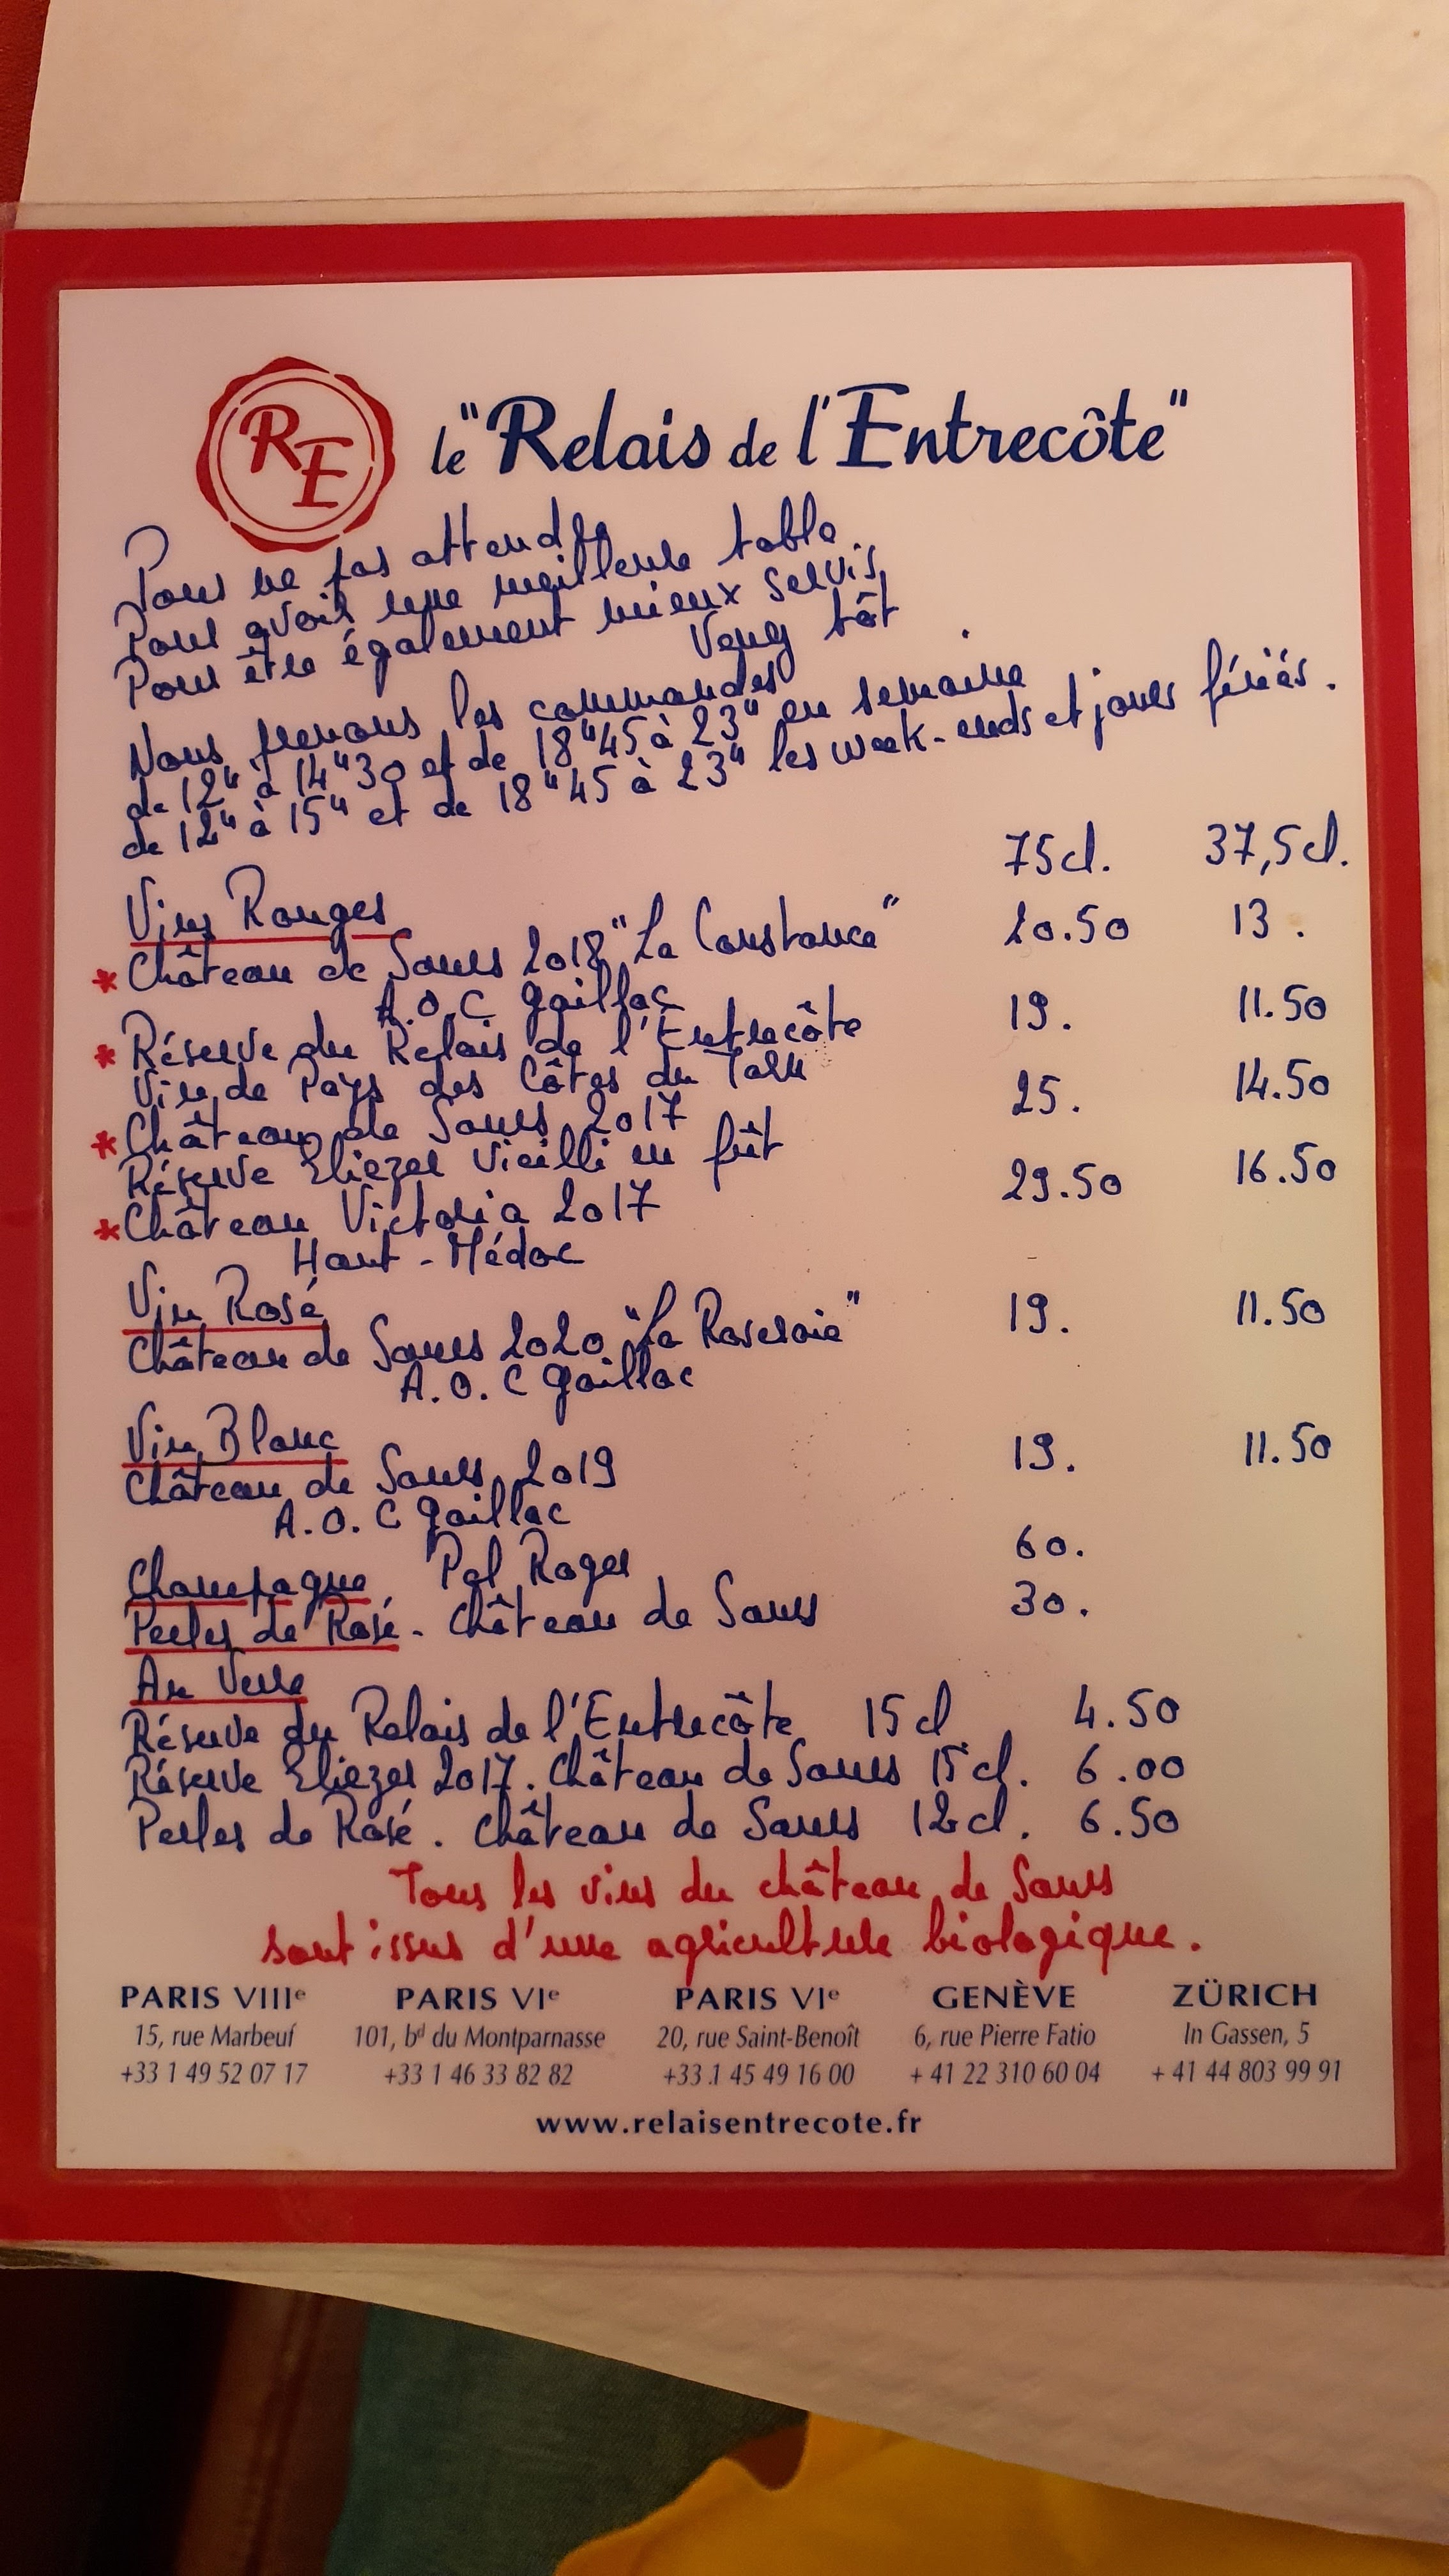 RE
le "Relais de l'Entrecôte"
Pour ne pas attendre
Pour avoir une meilleure table.
Pour être également mieux servis,
Venez tôt.
Nous prenons les commandes
de 12H à 14H30 et de 18H45 à 23H en semaine
de 12H à 15H et de 18H45 à 23H les week-ends et jours fériés.
75cl. 37,5cl.
Vins Rouges
* Château de Saurs 2018 "La Constance" 20.50 13.
A.O.C gaillac
* Réserve du Relais de l'Entrecôte 19. 11.50
Vin de Pays des Côtes du Tarn
* Château de Saurs 2017 25. 14.50
Réserve Eliezer Vieilli en fût
* Château Victoria 2017 29.50 16.50
Haut-Médoc
Vin Rosé
Château de Saurs 2020 "La Roseraie" 19. 11.50
A.O.C gaillac
Vin Blanc
Château de Saurs 2019 19. 11.50
A.O.C gaillac
Champagne Pol Roger 60.
Perles de Rosé - Château de Saurs 30.
Au Verre
Réserve du Relais de l'Entrecôte 15cl 4.50
Réserve Eliezer 2017. Château de Saurs 15cl. 6.00
Perles de Rosé. Château de Saurs 12cl. 6.50
Tous les vins du château de Saurs
sont issus d'une agriculture biologique.
PARIS VIIIe PARIS VIe PARIS VIe GENÈVE ZÜRICH
15, rue Marbeuf 101, bd du Montparnasse 20, rue Saint-Benoît 6, rue Pierre Fatio In Gassen, 5
+33 1 49 52 07 17 +33 1 46 33 82 82 +33 1 45 49 16 00 + 41 22 310 60 04 + 41 44 803 99 91
www.relaisentrecote.fr